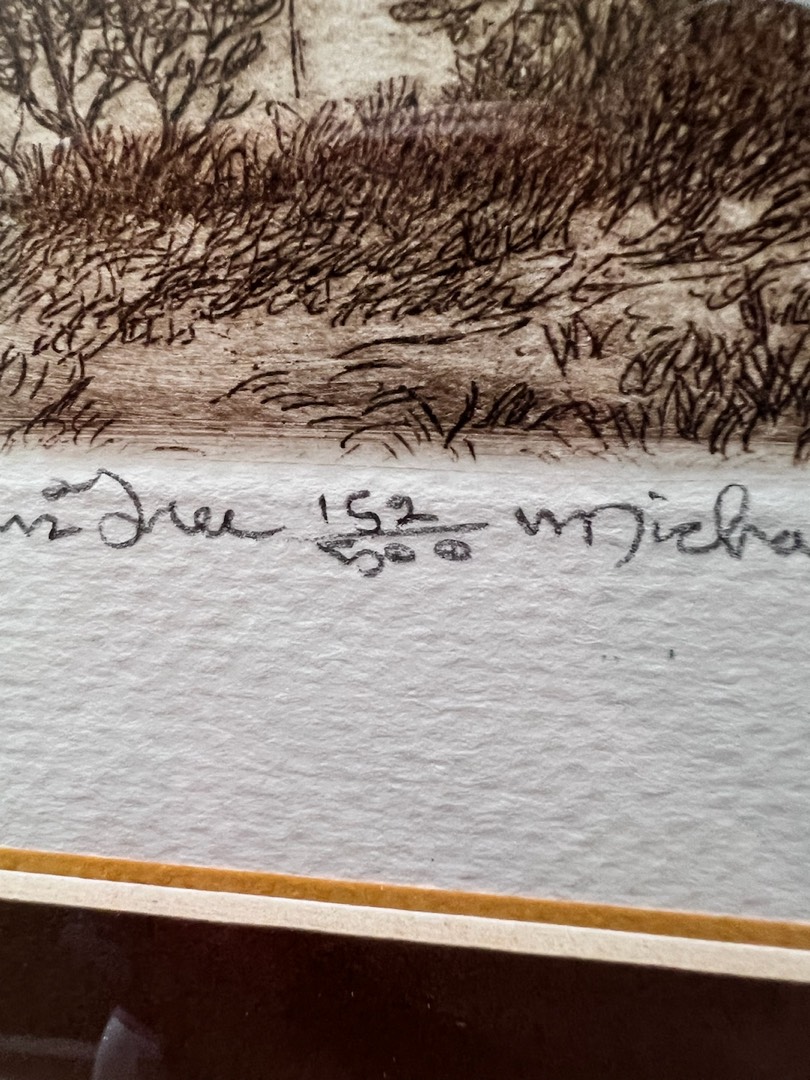 Tree 152/500 Micha